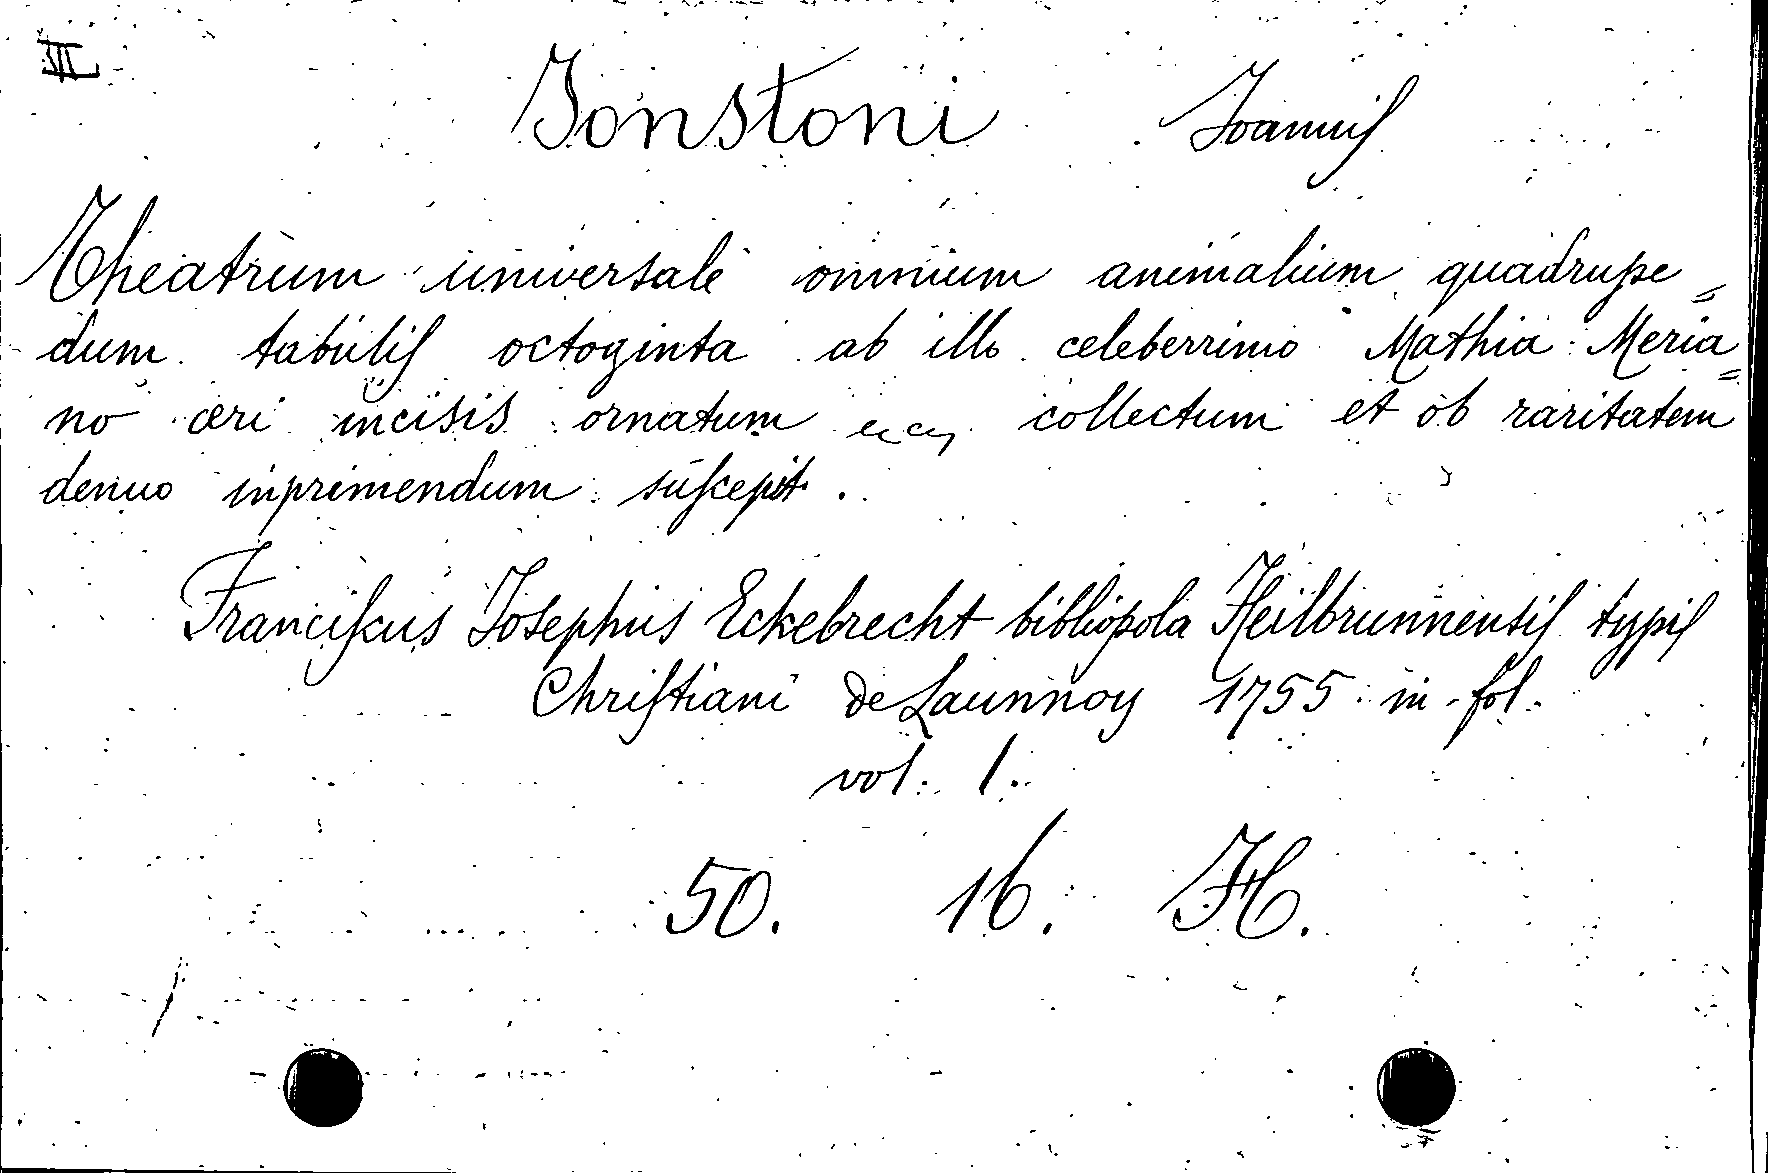 VII
Jonstoni Joannis
Theatrum universale omnium animalium quadrupe=
dum tabulis octoginta ab illo celeberrimo Mathia Meria=
no æri incisis ornatum collectum et ob raritatem
denuo inprimendum suscepit.
Franciskus Josephus Eckebrecht bibliopola Heilbrunnensis typis
Christiani de Launnoy 1755 in fol.
vol. 1.
50. 16. H.